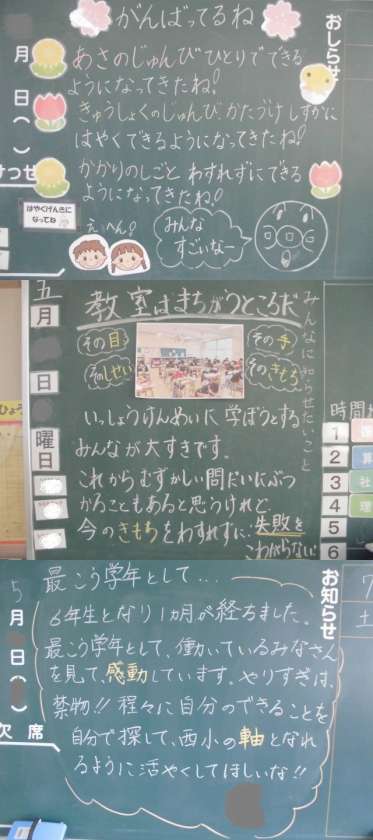 がんばってるね
おしらせ
月
日
(
)
けっせ
あさのじゅんび ひとりでできる
ようになってきたね!
きゅうしょくのじゅんび、かたづけ しずかに
はやくできるようになってきたね!
かかりのしごと わすれずにできる
ようになってきたね!
はやくげんきに
なってね
えっへん!
みんな
すごいなー
五
月
日
曜
日
教室はまちがうところだ
みんなに知らせたいこと
その目
その手
そのしせい
そのきもち
いっしょうけんめいに 学ぼうとする
みんなが大すきです。
これからむずかしい問だいにぶつ
かることもあると思うけれど
今のきもちをわすれずに 失敗を
こわがらない
ひょう
時間
1
2
3
4
5
6
国
算
社
理
5
月
日
(
)
欠席
お知らせ
7
土
最こう学年として...
6年生となり1ヵ月が経ちました。
最こう学年として、働いているみなさん
を見て、感動しています。やりすぎは、
禁物!! 程々に自分のできることを
自分で探して、西小の軸となれ
るように活やくしてほしいな!!